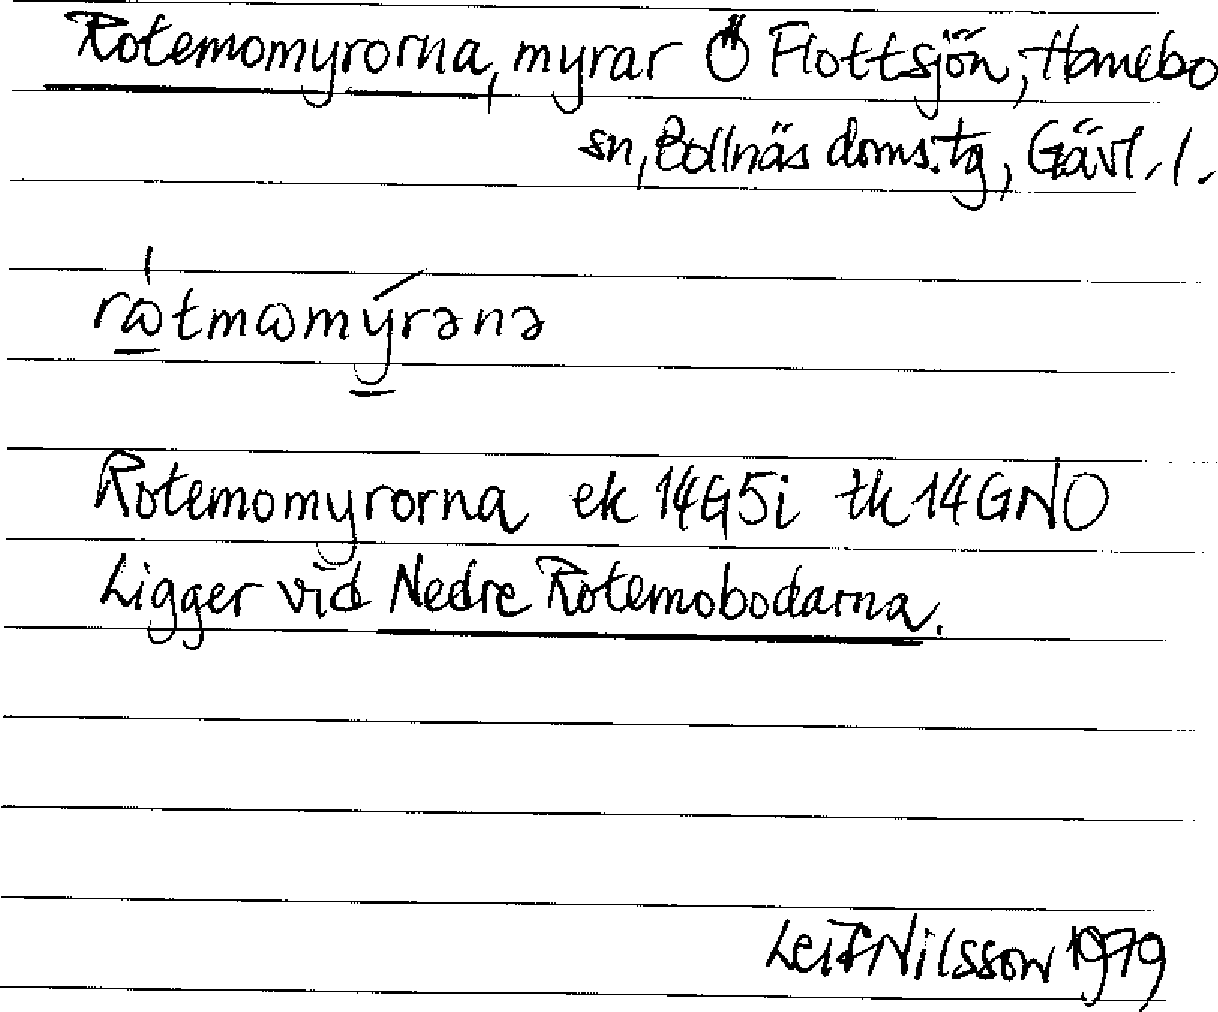 Rotemomyrorna, myrar Ö Flottsjön, Hanebo
sn, Bollnäs doms.tg, Gävl. l.
rɷ̀tmɷmýrənə
Rotemomyrorna ek 14G5i tk 14GNO
Ligger vid Nedre Rotemobodarna.
Leif Nilsson 1979